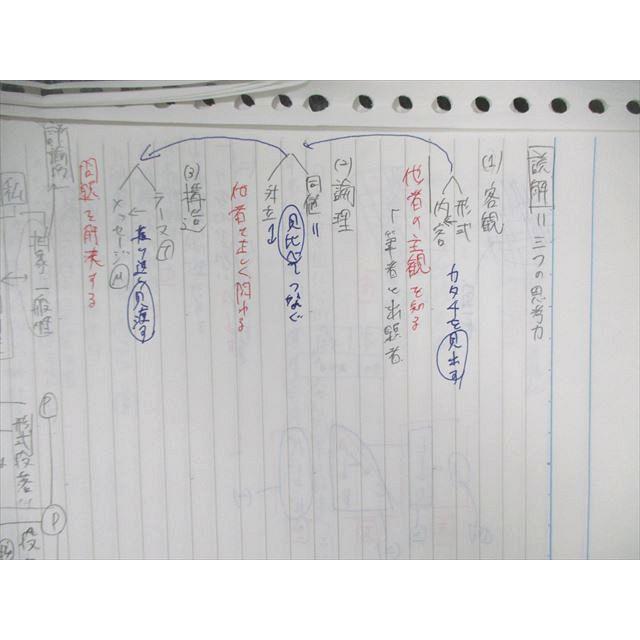 読解 = 三つの思考力
(1) 客観
形式
内容
カタチを見出す
他者の主観を知る
筆者と出題者
(2) 論理
同値 =
対立 ↔
見比べてつなぐ
他者と正しく関わる
(3) 構造
テーマ(T)
メッセージ(M)
振り返り見渡す
問題を解決する
評論的
私
相手
一般性
P
形式段落
P
段